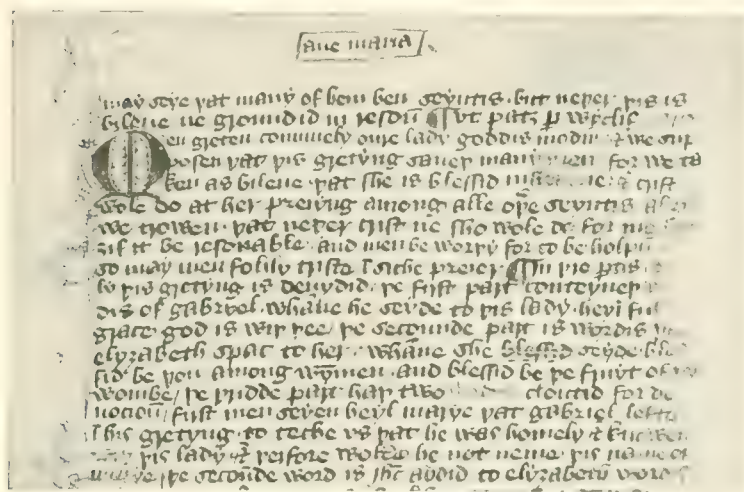 aue maria
may seye þat many of hem ben seyntis. but neþer þis is
bileue ne groundid in resoun ¶ ut patz p wyclif
Men greten comynely oure lady goddis modir & we sup
posen þat þis gretyng saueþ many men for we ta
ken as bileue þat she is blessid & crist
wole do at her preiyng among alle oþe seyntis
we trowen þat neþer crist ne she wole do for me
ȝif it be resonable. and men be worþy for to be holpun
so may men folily triste i siche preier ¶ In þre ptis
to þis gretyng is deuydid. þe first part conteyneþ
dis of gabryel. whāne he seyde to þis lady. heyl ful
grace god is wiþ þee. þe secounde part is wordis
elyzabeth spac to her. whāne she blessid seyde. bles
sid be þou among wymen. and blessid be þe fruyt of
wombe / þe þridde part haþ two cloutid for de
uocion / first men seyen heyl marye þat gabriel lefte
i his gretyng. to teche vs þat he was homely & knowen
þis lady & þerfore wolde he not neme þis name of
marye / þe secoūde word is ihc. addid to elyzabeth word